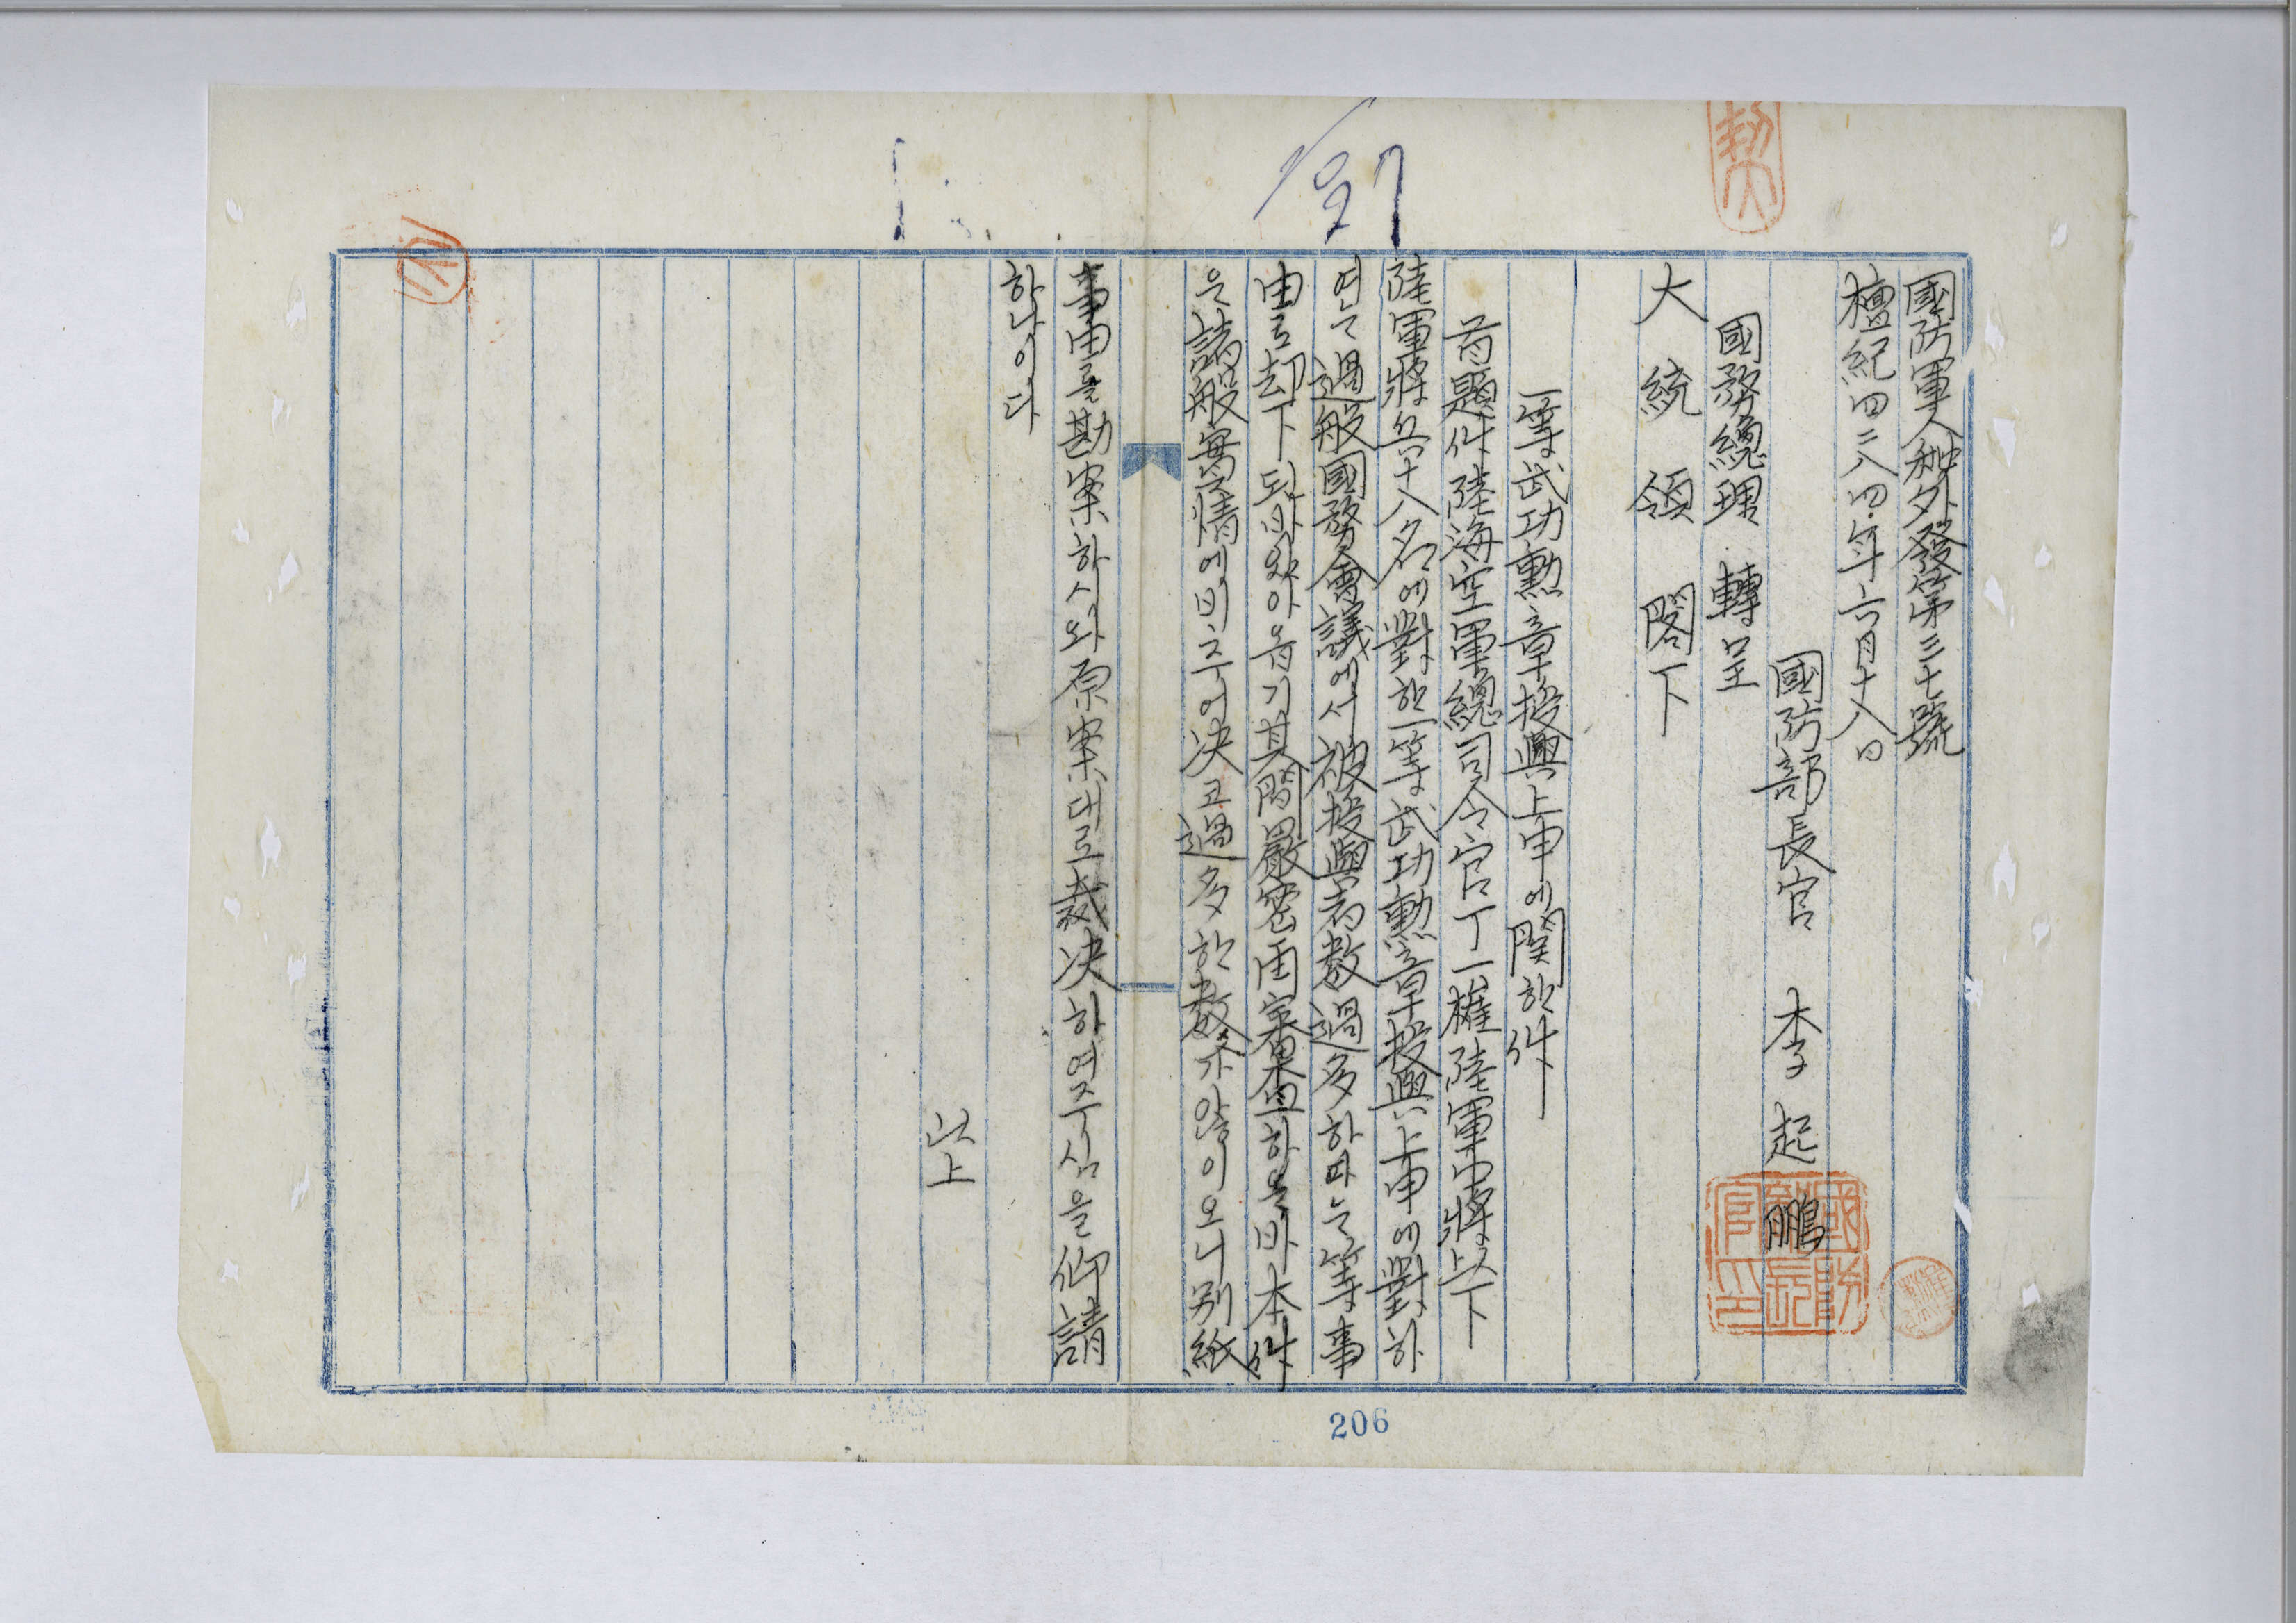 國防軍人秘外發第三七號
檀紀四二八四年六月十八日
國防部長官 李起鵬
國務總理 轉呈
大統領 閣下
一等武功勲章授與上申에關한件
首題件陸海空軍總司令官丁一權陸軍中將以下
陸軍將兵十八名에對한一等武功勲章授與上申에對하
여는過般國務會議에서被授與者数過多하다는等事
由로却下되바았아옵기其間嚴密周審査하온바本件
은諸般實情에비추어决코過多한数가않이오니別紙
事由를勘案하시와原案대로裁决하여주심을仰請
하나이다
以上
206